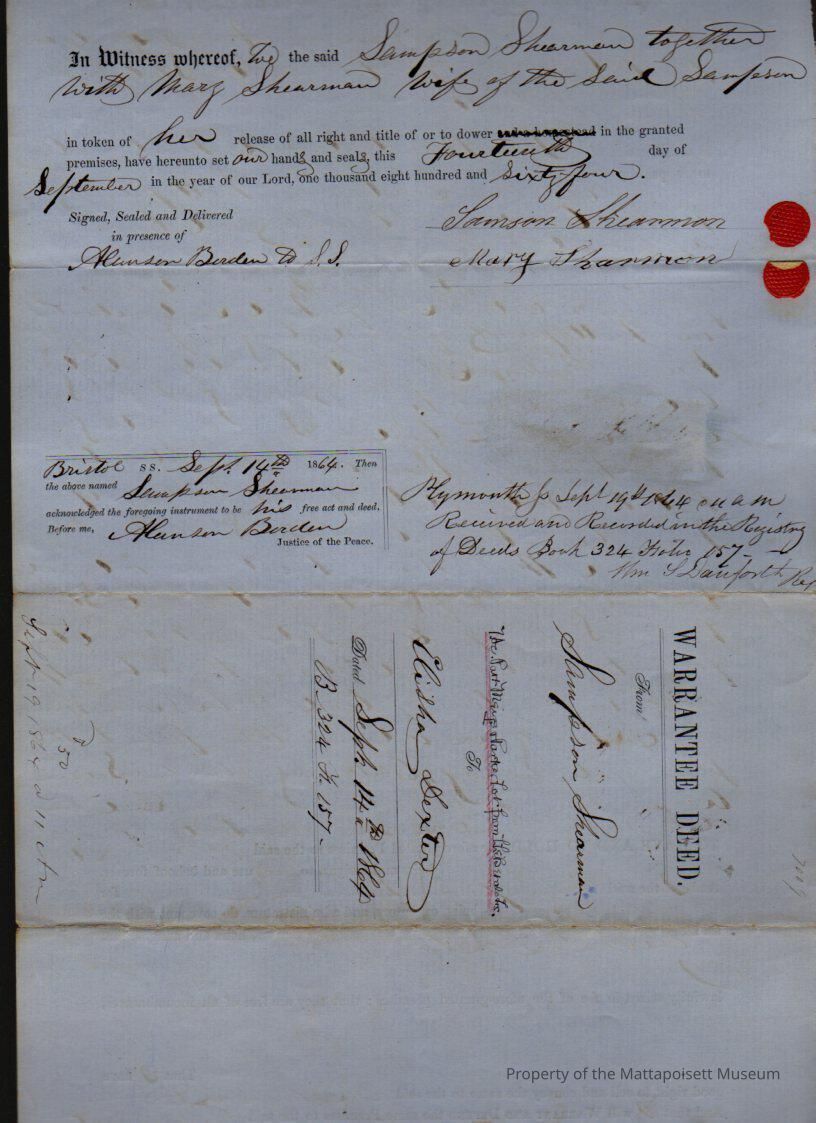 In Witness whereof, We the said Sampson Shearman together
with Mary Shearman wife of the said Sampson
in token of her release of all right and title of or to dower in the granted
premises, have hereunto set our hands and seals, this Fourteenth day of
September in the year of our Lord, one thousand eight hundred and sixty-four.
Signed, Sealed and Delivered
in presence of
Alanson Borden to S.S.
Samson Shearmon
Mary Sharmon
Bristol ss. Sept. 14th 1864. Then
the above named Sampson Shearman
acknowledged the foregoing instrument to be his free act and deed.
Before me, Alanson Borden
Justice of the Peace.
Plymouth ss Sept 19th 1864 11 a m
Received and Recorded in the Registry
of Deeds Book 324 Folio 157-
Wm S Danforth Reg
WARRANTEE DEED.
From
Sampson Shearman
To
Elisha Dexter
Dated Sept. 14th 1864
B. 324 F. 157-
50
Sept 19 1864 11 AM
Property of the Mattapoisett Museum